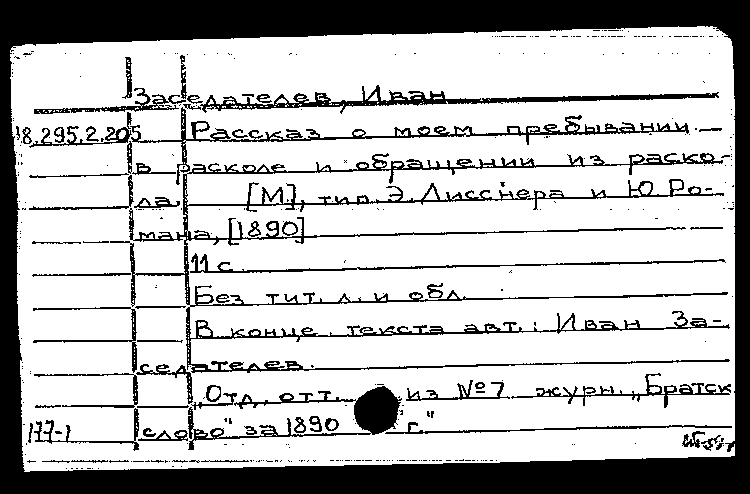 Заседателев, Иван
18.295.2.205 Рассказ о моем пребывании
в расколе и обращении из раско-
ла. [М], тип. Э. Лисснера и Ю. Ро-
мана, [1890]
11 с.
Без тит. л. и обл.
В конце текста авт.: Иван За-
седателев.
"Отд. отт. из №7 журн. „Братск.
177-1 слово" за 1890 г."